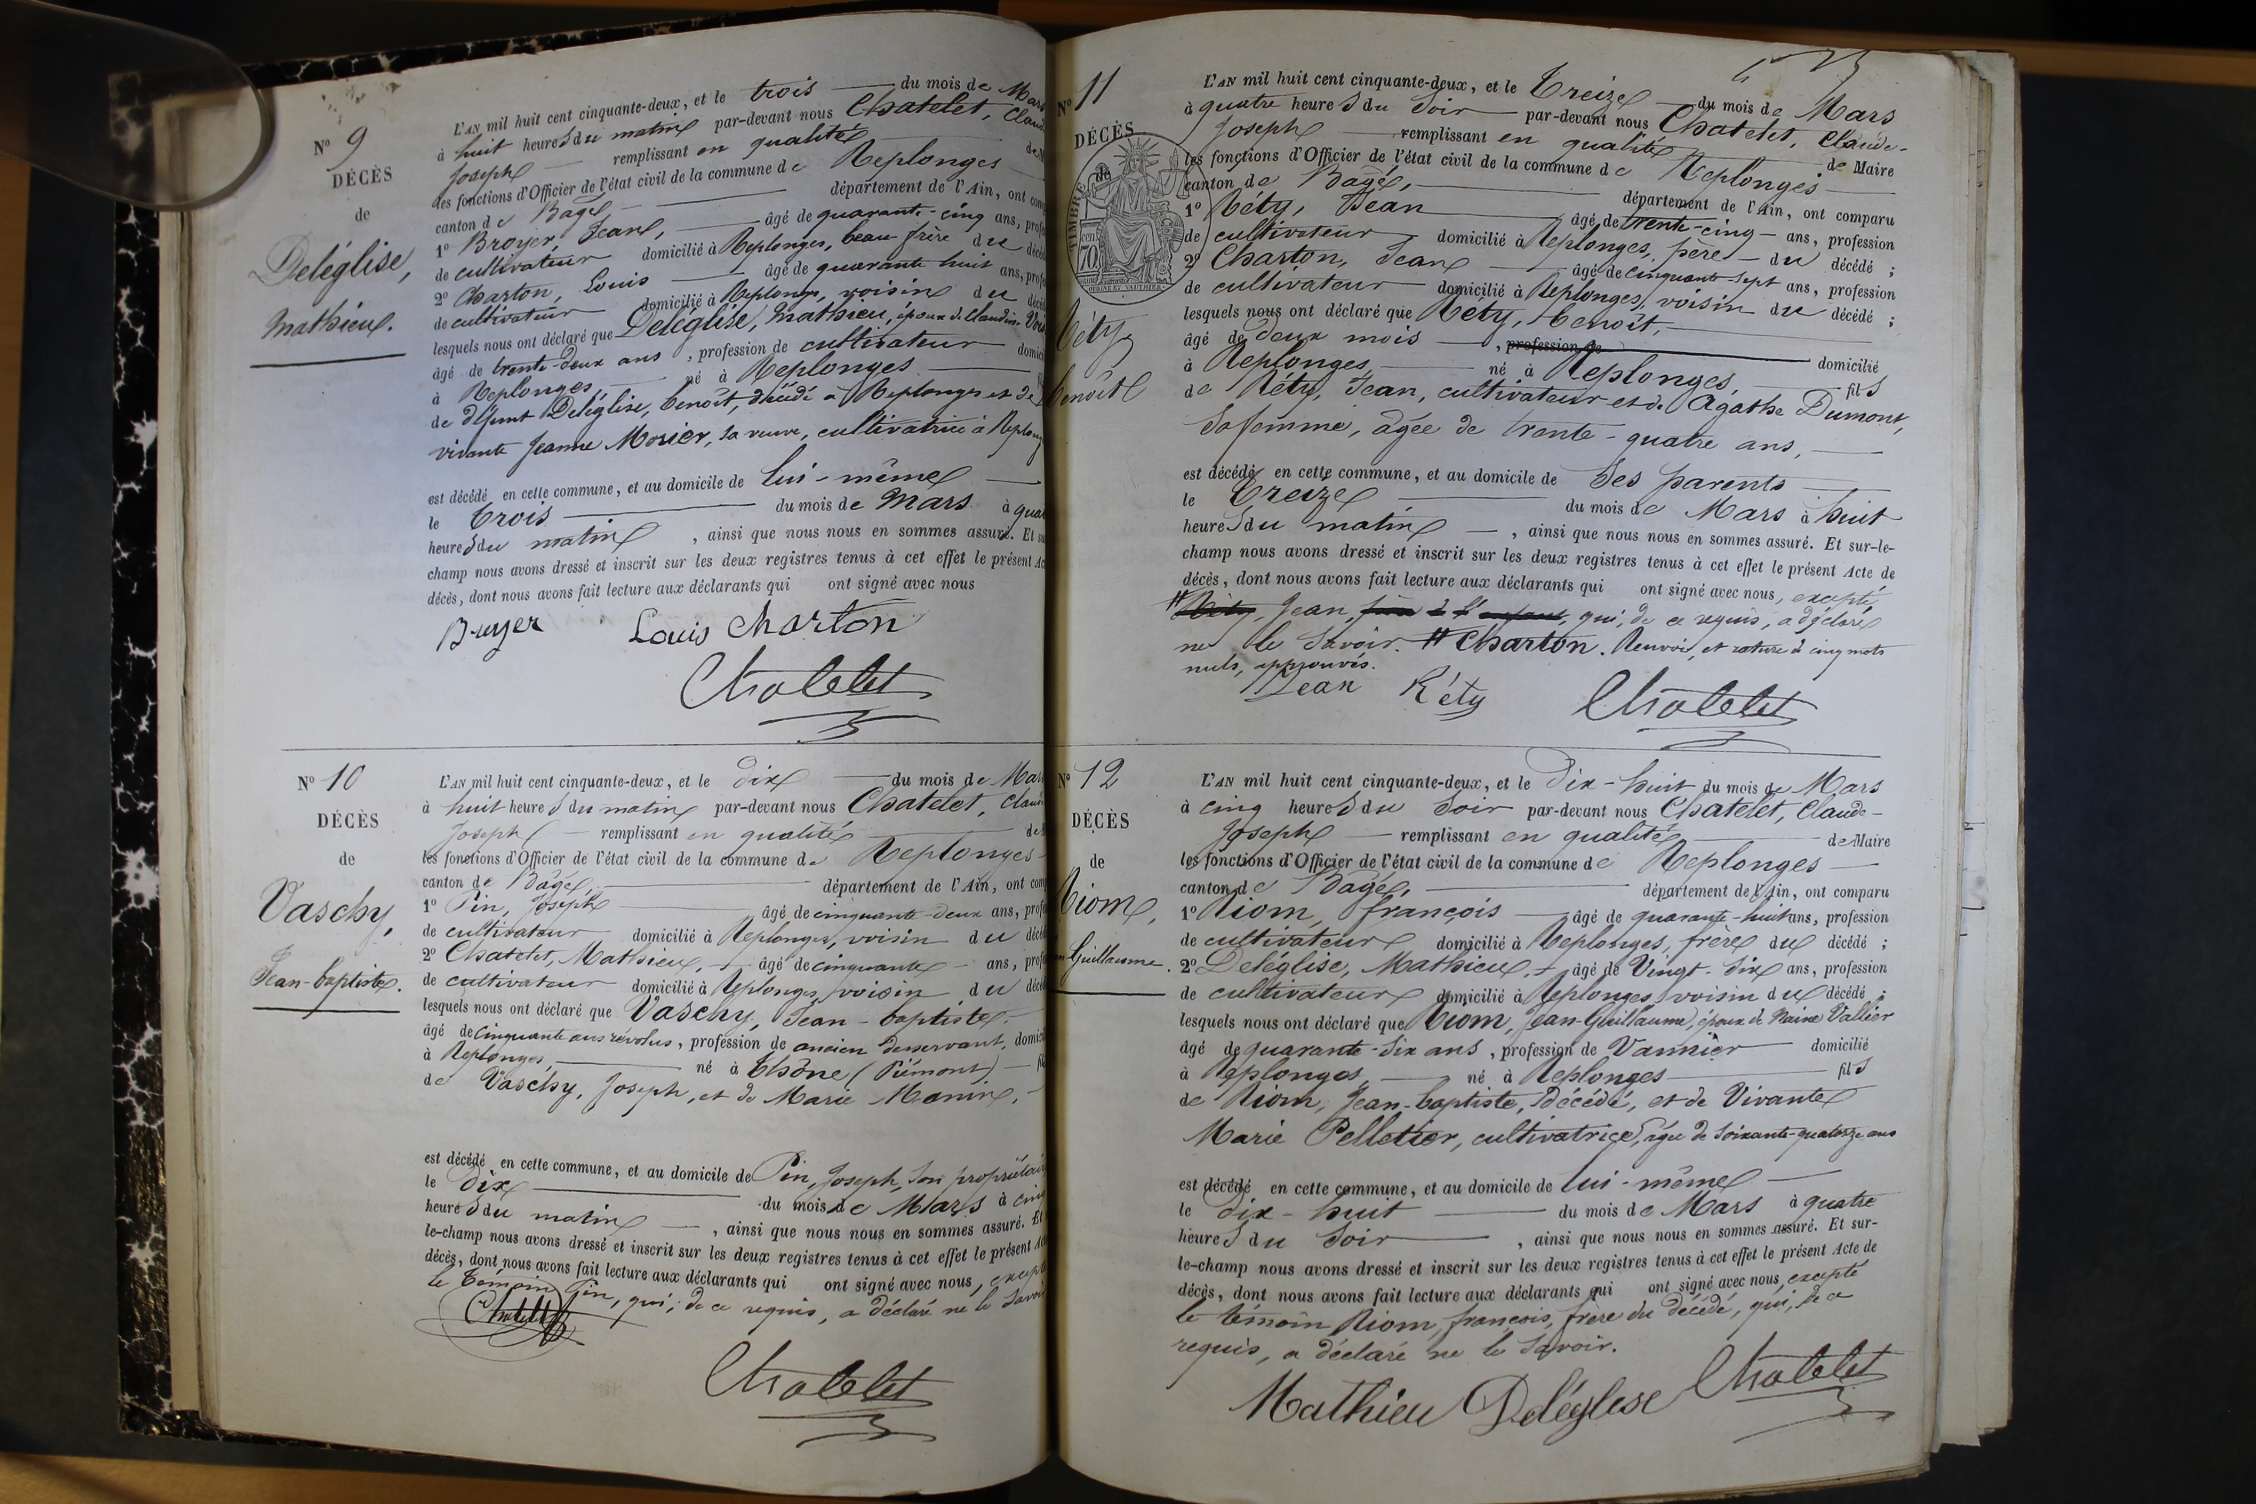 Nº 9
DÉCÈS
de
Deléglise,
Mathieu.
L'AN mil huit cent cinquante-deux, et le trois du mois de Mars
à huit heures du matin par-devant nous Chatelet, Claude
Joseph remplissant en qualité de M
les fonctions d'Officier de l'état civil de la commune de Replonges
canton de Bagé département de l'Ain, ont comp
1º Broyer, Jean, âgé de quarante-cinq ans, profe
de cultivateur domicilié à Replonges, beau-frère du décéd
2º Charton, Louis âgé de quarante huit ans, profe
de cultivateur domicilié à Replonges, voisin du décéd
lesquels nous ont déclaré que Deléglise, Mathieu, époux de Claudine
âgé de trente-deux ans, profession de cultivateur domici
à Replonges, né à Replonges
de défunt Deléglise, benoît, décédé à Replonges et de
vivante Jeanne Morier, sa veuve, cultivatrice à Replong
est décédé en cette commune, et au domicile de lui-même
le trois du mois de Mars à quat
heures du matin, ainsi que nous nous en sommes assuré. Et su
champ nous avons dressé et inscrit sur les deux registres tenus à cet effet le présent Ac
décès, dont nous avons fait lecture aux déclarants qui ont signé avec nous
Broyer Louis Charton
Chatelet
Nº 10
DÉCÈS
de
Vaschy,
Jean-baptiste.
L'AN mil huit cent cinquante-deux, et le dix du mois de Mars
à huit heures du matin par-devant nous Chatelet, Claude
Joseph remplissant en qualité de
les fonctions d'Officier de l'état civil de la commune de Replonges
canton de Bagé, département de l'Ain, ont comp
1º Pin, Joseph âgé de cinquante-deux ans, profe
de cultivateur domicilié à Replonges, voisin du décéd
2º Chatelet, Mathieu, âgé de cinquante ans, profe
de cultivateur domicilié à Replonges, voisin du décéd
lesquels nous ont déclaré que Vaschy, Jean-baptiste,
âgé de cinquante ans révolus, profession de ancien desservant, domici
à Replonges, né à Thône (Piémont) fil
de Vaschy, Joseph, et de Marie Manin,
est décédé en cette commune, et au domicile de Pin, Joseph, son propriétair
le dix du mois de Mars à cinq
heures du matin, ainsi que nous nous en sommes assuré. Et
le-champ nous avons dressé et inscrit sur les deux registres tenus à cet effet le présent Act
décès, dont nous avons fait lecture aux déclarants qui ont signé avec nous, excepté
le témoin Pin, qui, de ce requis, a déclaré ne le savoir
Chatelet
Chatelet
Nº 11
DÉCÈS
de
TIMBRE
70
Réty,
benoît
L'AN mil huit cent cinquante-deux, et le treize du mois de Mars
à quatre heures du Soir par-devant nous Chatelet, Claude-
Joseph remplissant en qualité de Maire
les fonctions d'Officier de l'état civil de la commune de Replonges
canton de Bagé, département de l'Ain, ont comparu
1º Réty, Jean âgé de trente-cinq ans, profession
de cultivateur domicilié à Replonges, père du décédé ;
2º Charton, Jean âgé de cinquante-sept ans, profession
de cultivateur domicilié à Replonges, voisin du décédé ;
lesquels nous ont déclaré que Réty, benoît,
âgé de deux mois, profession de domicilié
à Replonges né à Replonges, fils
de Réty, Jean, cultivateur et de Agathe Dumont,
Sa femme, âgée de trente-quatre ans,
est décédé en cette commune, et au domicile de Ses parents
le treize du mois de Mars à huit
heures du matin, ainsi que nous nous en sommes assuré. Et sur-le-
champ nous avons dressé et inscrit sur les deux registres tenus à cet effet le présent Acte de
décès, dont nous avons fait lecture aux déclarants qui ont signé avec nous, excepté
# Réty, Jean, père de l'enfant, qui, de ce requis, a déclaré
ne le Savoir. # Charton. Renvoi, et rature de cinq mots
nuls, approuvés.
Jean Réty Chatelet
Nº 12
DÉCÈS
de
Riom,
Guillaume.
L'AN mil huit cent cinquante-deux, et le Dix-huit du mois de Mars
à cinq heures du Soir par-devant nous Chatelet, Claude-
Joseph remplissant en qualité de Maire
les fonctions d'Officier de l'état civil de la commune de Replonges
canton de Bagé, département de l'Ain, ont comparu
1º Riom, françois âgé de quarante-huit ans, profession
de cultivateur domicilié à Replonges, frère du décédé ;
2º Deléglise, Mathieu, âgé de Vingt-Six ans, profession
de cultivateur domicilié à Replonges voisin du décédé ;
lesquels nous ont déclaré que Riom, Jean-Guillaume, époux de Naine Vallier
âgé de quarante-Six ans, profession de Vannier domicilié
à Replonges, né à Replonges fils
de Riom, Jean-baptiste, décédé, et de Vivante
Marie Pelletier, cultivatrice, âgée de Soixante-quatorze ans
est décédé en cette commune, et au domicile de lui-même
le Dix-huit du mois de Mars à quatre
heures du Soir, ainsi que nous nous en sommes assuré. Et sur-
le-champ nous avons dressé et inscrit sur les deux registres tenus à cet effet le présent Acte de
décès, dont nous avons fait lecture aux déclarants qui ont signé avec nous, excepté
le témoin Riom, françois, frère du décédé, qui, de ce
requis, a déclaré ne le Savoir.
Mathieu Deléglise Chatelet